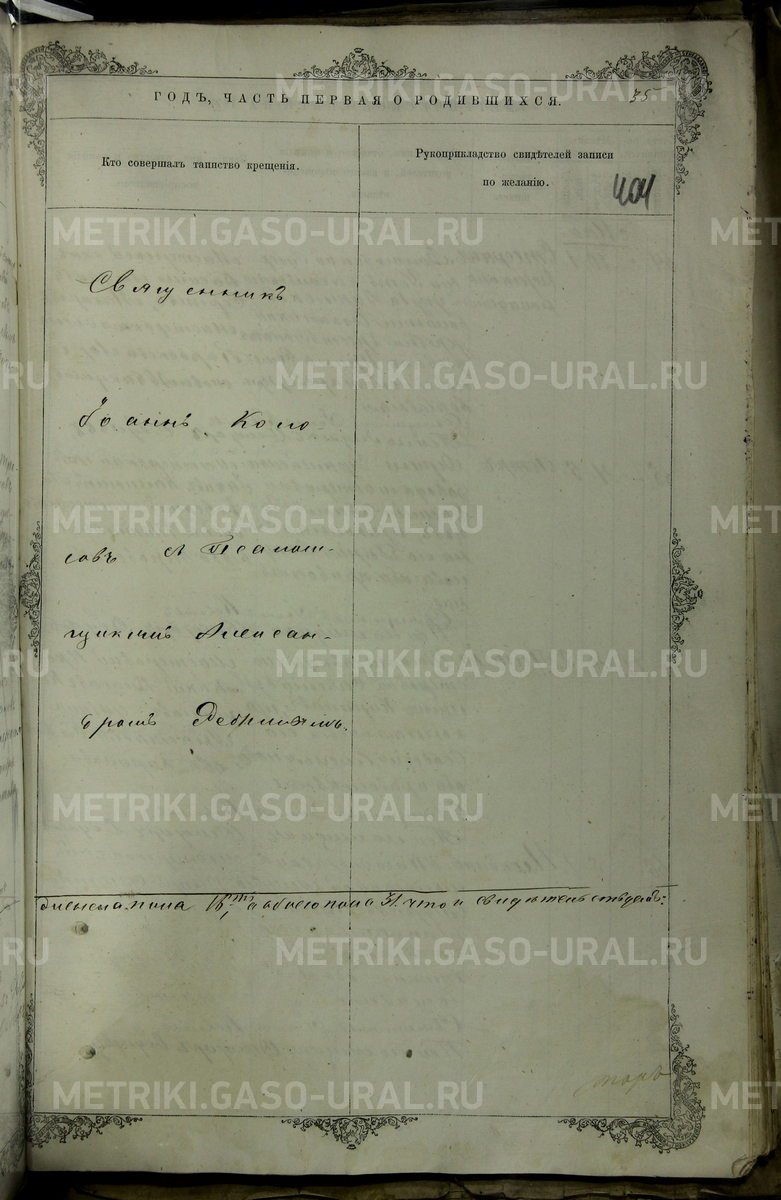 ГОДЪ, ЧАСТЬ ПЕРВАЯ О РОДИВШИХСЯ. 35
Кто совершалъ таинство крещенія.
Рукоприкладство свидѣтелей записи
по желанію.
404
Священникъ
Іоаннъ Коло
совъ съ Псаломъ-
щикомъ Алексан-
дромъ
женска пола 16ть, а обоего пола 31. что и свидѣтельствуемъ:
METRIKI.GASO-URAL.RU